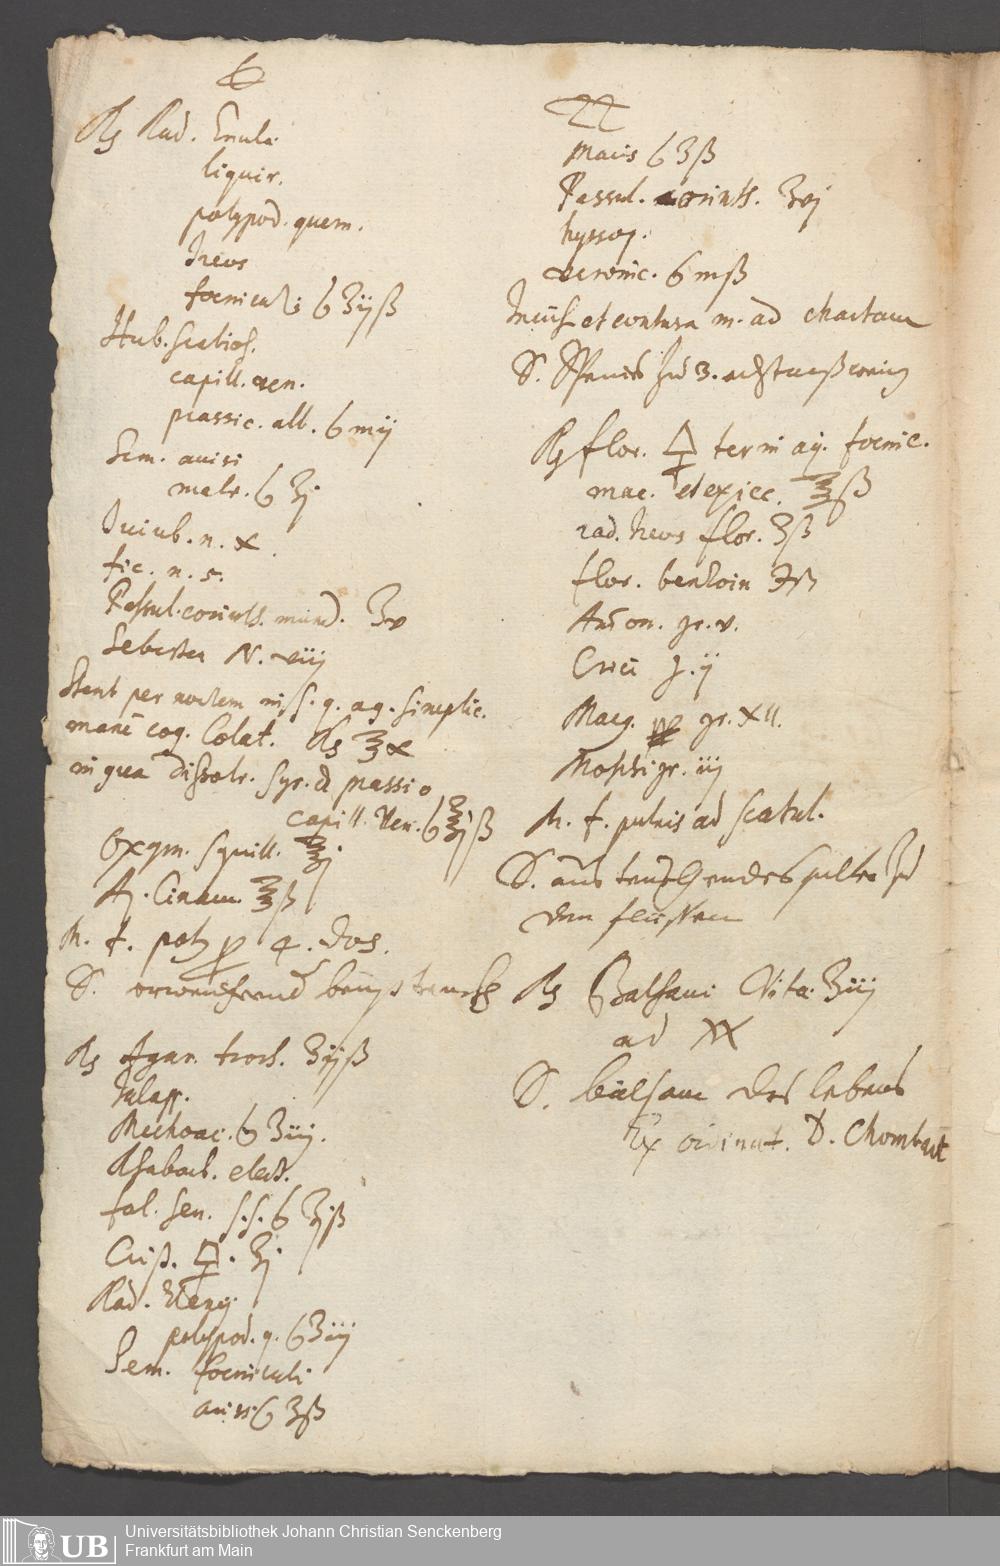 6
℞ Rad. Enulae
liquir.
polypod. quern.
Ireos
foeniculi ʒijß
Hrb. scabios.
capill. ven.
prassii. alb. mij
Sem. anisi
malv. ʒj
Jujub. n. x.
fic. n. 5.
Passul. corinth. mund. ʒv
Sebesten N. viij
Stent per noctem in s. q. aq. simplic.
manè coq. Colat. ℞ ℥x
in qua dissolv. Syr. de prassio
capill. Ven. ℥jß
Oxym. squill. ℥j
Aq. Cinam. ℥ß
M. f. potq p 4. dos.
S.
℞ Agar. troch. ʒijß
Jalapp.
Mechoac. ʒiij.
Rhabarb. elect.
fol. Sen. s.s. ʒjß
Crist. 🜿. ʒj
Rad.
polypod. q. ʒiij
Sem. foeniculi
anisi ʒß
22
Macis ʒß
Passul. corinth. ʒvj
hyssop.
veronic. mß
Incis. et contusa m. ad chartam
S. Species zu 3.
℞ flor. 🜍 ter in aq. foenic.
mac. et exicc. ℥ß
rad. Ireos flor. ʒß
flor. benzoin ℈ß
gr. v.
Croci g. ij
Mag. gr. XII.
Moschi gr. iij
M. f. pulvis ad scatul.
S.
den flüssen
℞ Balsami Vitae ʒiij
ad
S. balsam des lebens
Ex ordinat. D. Chombart
Universitätsbibliothek Johann Christian Senckenberg
Frankfurt am Main
UB